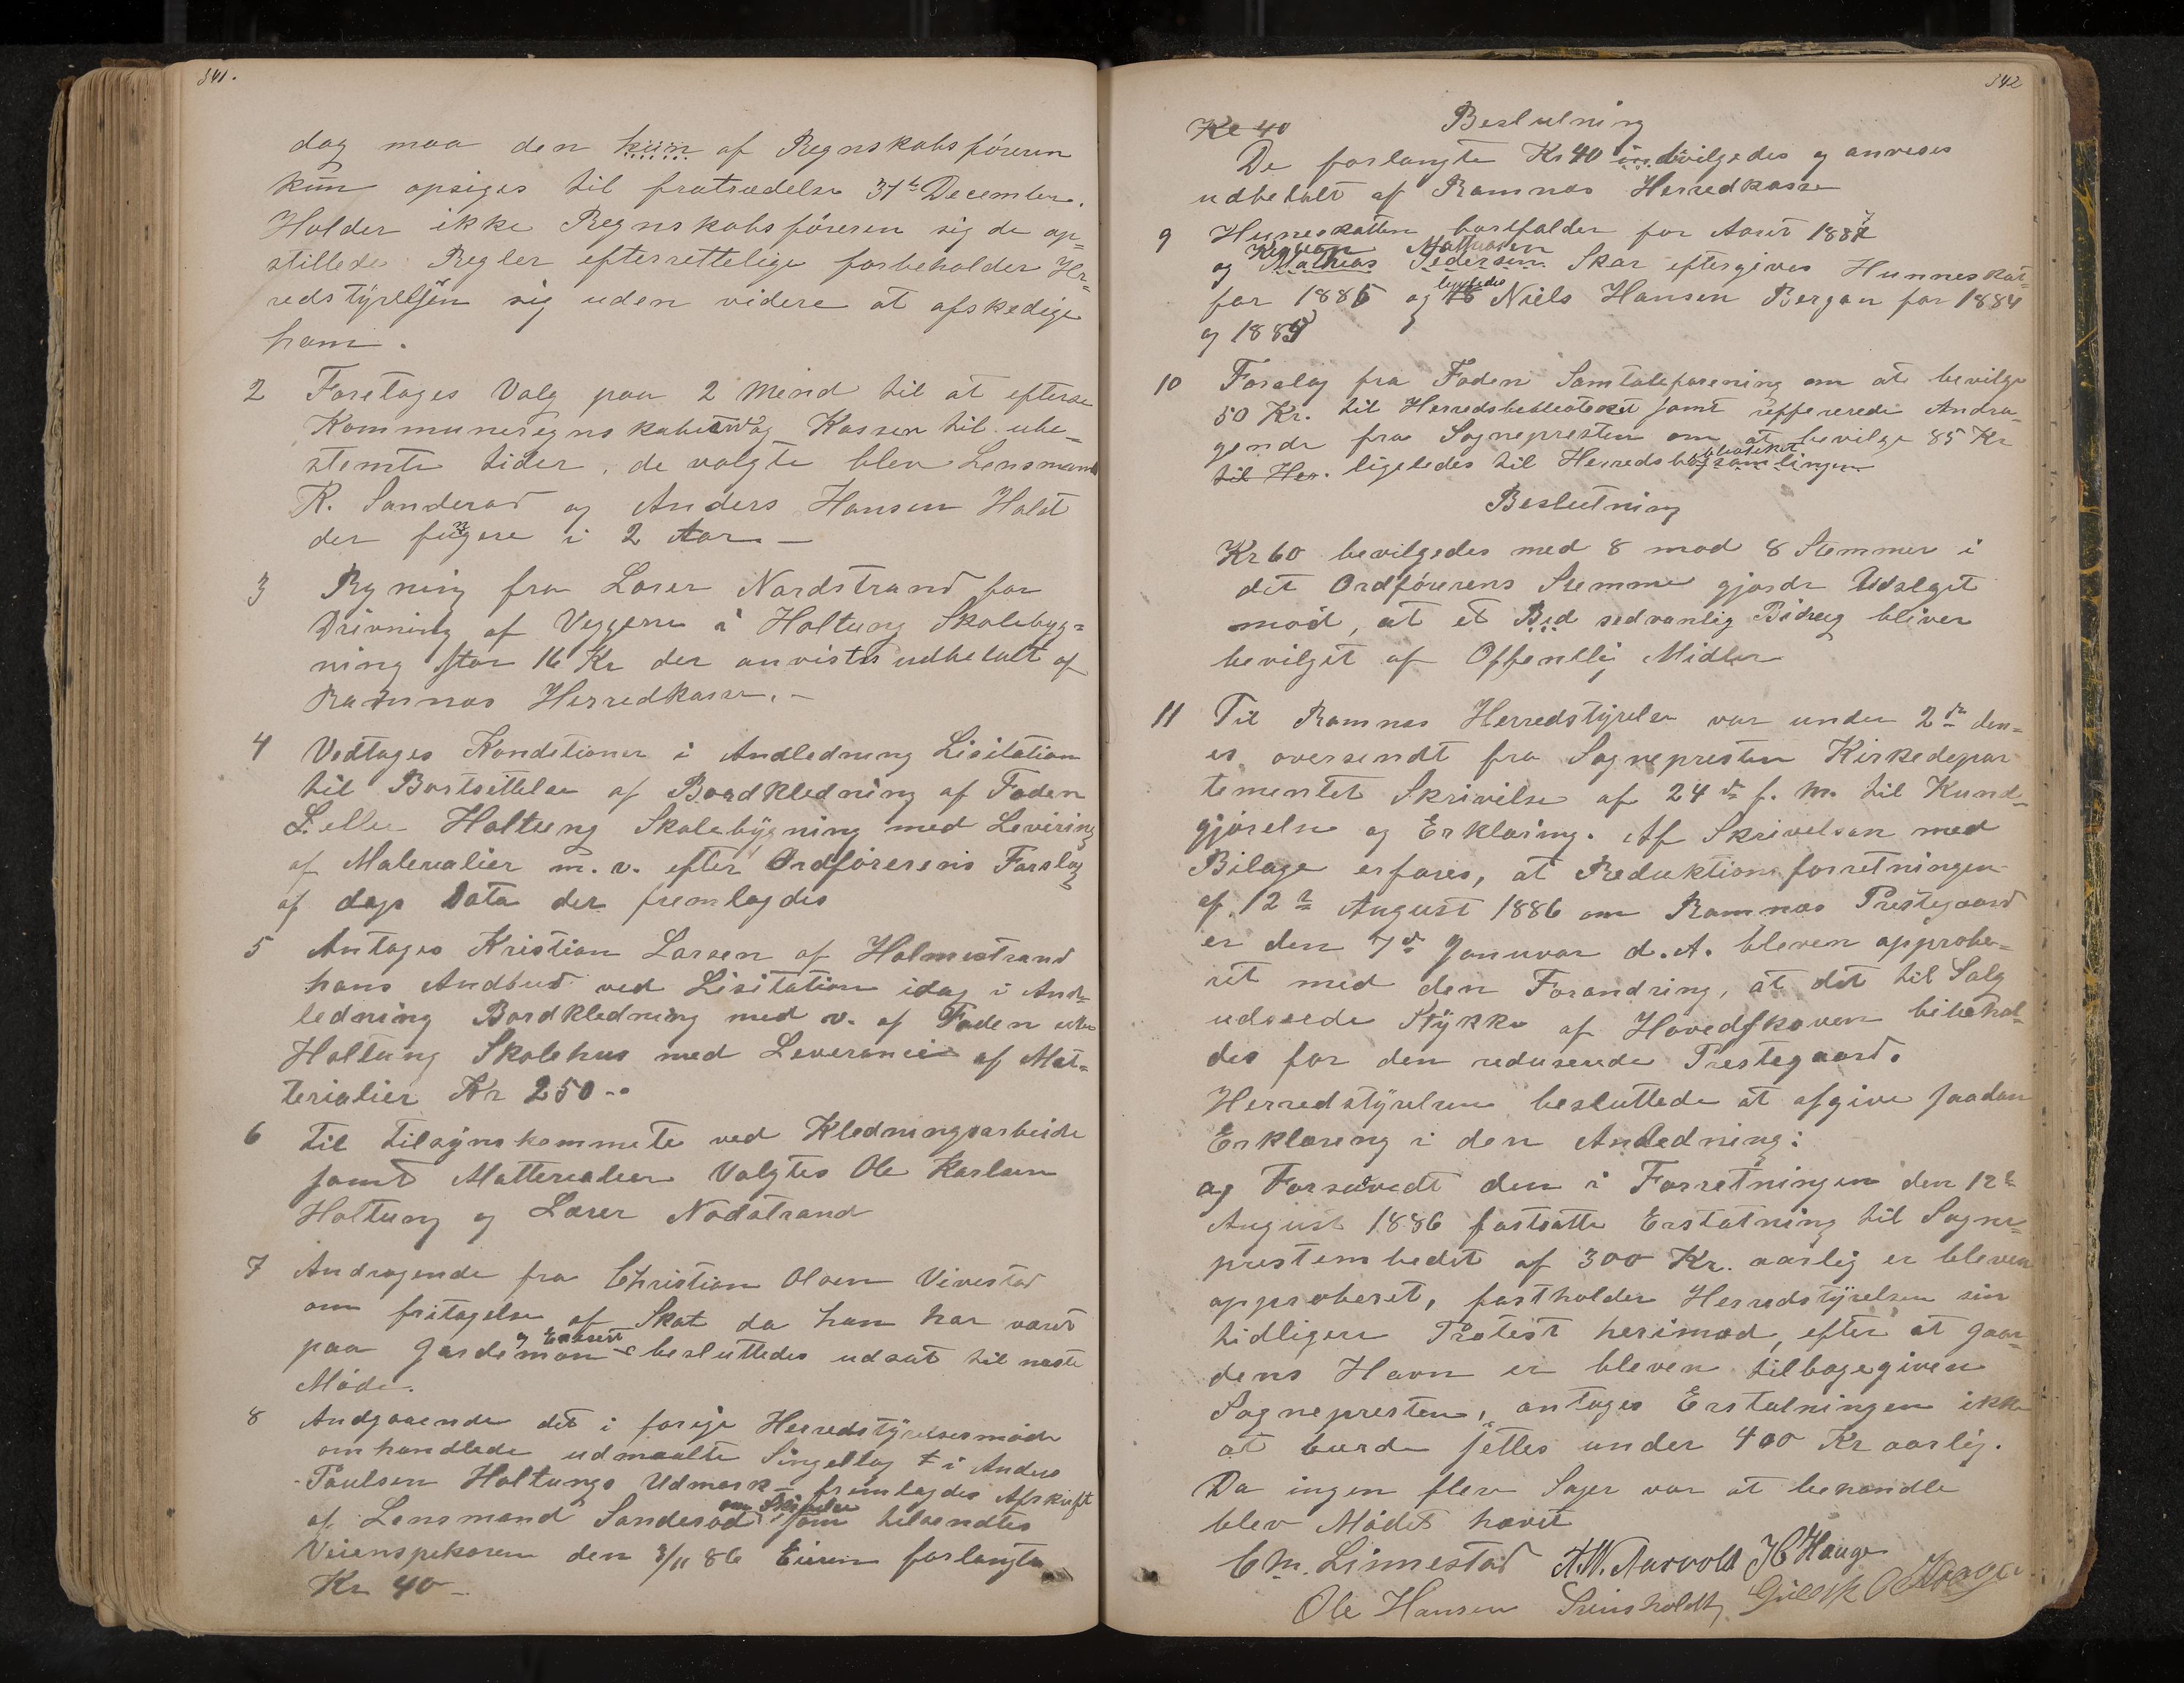 341.
dag maa den kun af Regnskabsføreren
kun opsiges til fratrædelse 31te December.
Holder ikke Regnskabsføreren sig de op-
stillede Regler efterrettelige forbeholder Her-
redstyrelsen sig uden videre at afskedige
ham.
2 Foretages Valg paa 2 Mænd til at efterse
Kommuneregnskabet og Kassen til ube-
stemte tider, de valgte blev Lensmand
R. Sanderød og Anders Hansen Holst
der fungere i 2 Aar. —
3 Rgning fra Lærer Nordstrand for
Drivning af Veggene i Holtung Skolebyg-
ning stor 16 Kr der anvistes udbetalt af
Ramnæs Herredkasse. —
4 Vedtages Konditioner i Andledning Lisitation
til Bortsettelse af Bordkledning af Foden
Lille Holtung Skolebygning med Levering
af Materialier m. v. efter Ordførerens Forslag
af dags Data der fremlagdes
5 Antages Kristian Larsen af Holmestrand
hans Andbud ved Lisitation idag i And-
ledning Bordkledning med v. af Foden
Holtung Skolehus med Leverance af Mat-
terialier Kr 250 --
6 Til tilsynskommete ved Kledningsarbeide
samt Matterialier Valgtes Ole Karlsen
Holtung og Lærer Nodstrand
7 Andragende fra Christian Olsen Vivestad
om fritagelse af Skat da han har været
paa Gardemoen besluttedes udsat til næste
Møde.
8 Andgaaende det i forige Herredstyrelsesmøde
omhandlede udmaalte Singeltag i Anders
Paulsen Holtungs Udmark - fremlagdes Afskrift
af Lensmand Sanderød om Skjønnet som tilsendtes
Veiinspektøren den 3/11 86 Eieren forlangte
Kr 40 —
342
Kr 40 Beslutning
De forlangte Kr 40 indvilgedes og anvises
udbetalt af Ramnæs Herredkasse
9 Hunneskatten bortfalder for Aaret 1887
og Mathias Pedersen Skar eftergives Hunneskat-
for 1885 og ligeledes Niels Hansen Bergan for 1884
og 1885
10 Forslag fra Foden Samtaleforening om at bevilge
50 Kr. til Herredsbibliotecket samt refererede Andra-
gende fra Sognepresten om at bevilge 85 Kr
til Her. ligeledes til Herredsbogsamlingen
Beslutning
Kr 60 bevilgedes med 8 mod 8 Stemmer i
det Ordførerens Stemme gjorde Udslaget
mod, at et Bid sedvanlig Bidrag bliver
bevilget af Offentlig Midler
11 Til Ramnes Herredstyrelse var under 2de den-
es oversendt fra Sognepresten Kirkedepar
tementet Skrivelse af 24de f. M. til Kund-
gjørelse og Erklæring. Af Skrivelsen med
Bilage erfares, at Reduktionsforretningen
af 12te August 1886 om Ramnæs Prestegaard
er den 7de Januvar d. A. bleven approbe-
ret med den Forandring, at det til Salg
udseede Stykke af Hovedskoven bibehol-
des for den reduserede Prestegaard.
Herredstyrelsen besluttede at afgive saadan
Erklæring i den Anledning:
og Forsaavidt den i Forretningen den 12te
August 1886 fastsatte Erstatning til Sogne-
prestembedet af 300 Kr. aarlig er bleven
approberet, fastholder Herredstyrelsen sin
tidligere Protest herimod, efter at Gaar-
dens Havn er bleven tilbagegiven
Sognepresten, antages Erstatningen ikke
at burde settes under 400 Kr aarlig.
Da ingen flere Sager var at behandle
blev Mødet hævet
C M. Linnestad A. W. Aarvold J C Hauge
Ole Hansen Sveinsholdt